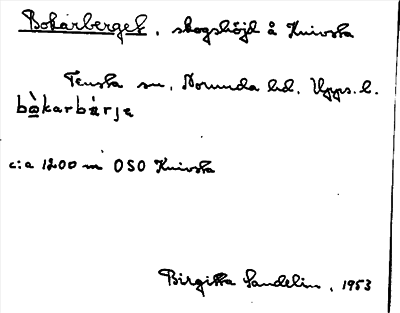 Bokarberget, skogshöjd å Knivsta
Tensta sn, Norunda hd, Upps. l.
bòkarbárje
c:a 1200 m OSO Knivsta
Birgitta Sandelin, 1953